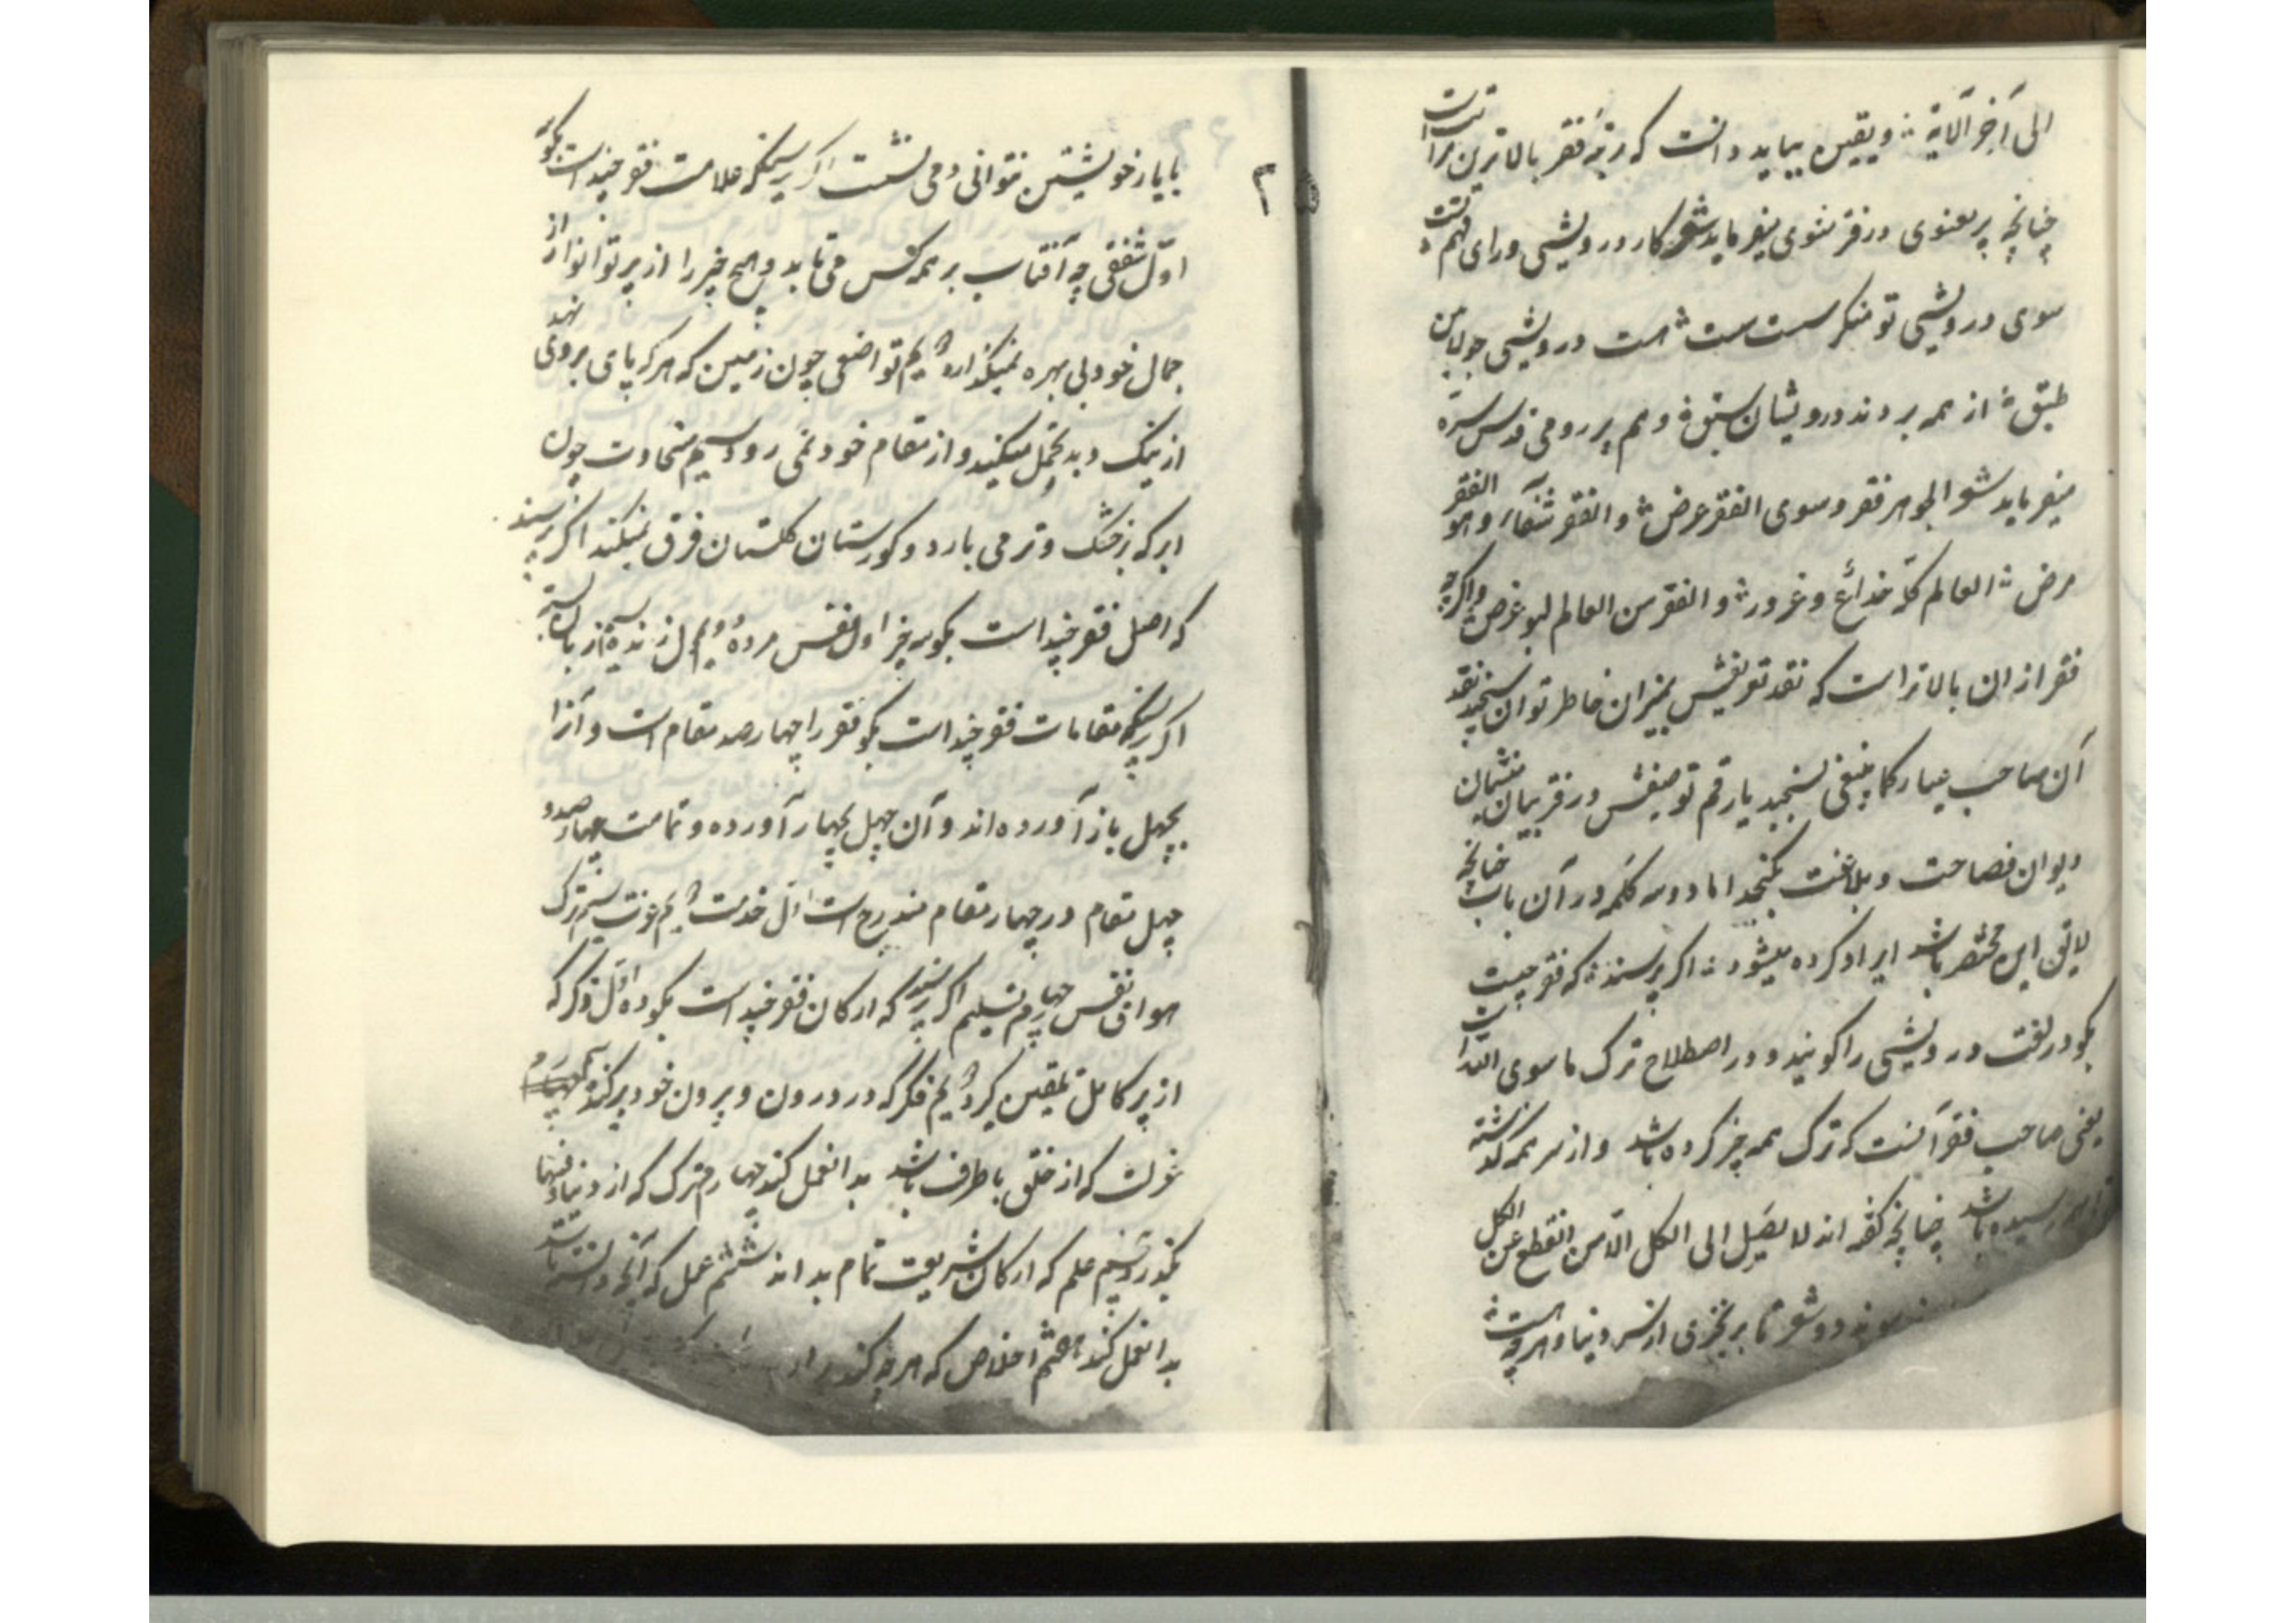 الی آخر الآیة ؞ و یقین بیاید دانست که رتبهٔ فقر بالاترین مراتبست
چنانچه پیر معنوی در دفتر مثنوی میفرماید شعر کار درویشی ورای فهم تست
سوی درویشی تو منکر سست سست ؞ هست درویشی جو
طبق ؞ از همه بردند درویشان سبق ؞ و هم پیر رومی قدس سره
میفرماید شعر الجوهر فقر و سوی الفقر عرض ؞ و الفقر شفآء و هو الفقر
مرض ؞ العالم کله خداع و غرور ؞ و الفقر من العالم غرض ؞ و اگرچه
فقر از ان بالاتر است که نقد تعریفش بمیزان خاطر توان سنجید نقد
آن صاحب عیار کما ینبغی نسنجید یا رقم توصیفش در دفتر بیان منشیان
دیوان فصاحت و بلاغت بگنجد اما دو سه کلمه در آن باب چنانچه
لایق این مختصر باشد ایراد کرده میشود ؞ اگر پرسند که فقر چیست
بگو در لغت درویشی را گویند و در اصطلاح ترک ما سوی الله است
یعنی صاحب فقر آنست که ترک همه چیز کرده باشد و از سر همه گذشته
رسیده باشد چنانچه گفته اند لا یصل الی الکل الا من انقطع عن الکل
شعر تا بر نخیزی از سر دنیا و هرچه هست ؞
با یار خویشتن نتوانی دمی نشست اگر پرسند که علامت فقر چند است بگو سه
اول شفقی چه آفتاب بر همه کس می تابد و هیچ چیز را از پرتو انوار از
جمال خود بی بهره نمیگذارد دویم تواضعی چون زمین که هر که پای بر وی نهد
از نیک و بد تحمل میکند و از مقام خود نمی رود سیم سخاوت چون
ابر که بر خشک و تر می بارد و کورستان کلستان فرق نمیکند اگر پرسند
که اصل فقر چند است بگو سه چیز اول نفس مرده دویم دل زنده سیم زبان بسته
اگر پرسند که مقامات فقر چند است بگو فقر را چهار صد مقام است و آنرا
بچهل باز آورده اند و آن چهل بچهار آورده و تمامت چهار صد و
چهل مقام در چهار مقام مندرج است اول خدمت دویم عزت سیم ترک
هوای نفس چهارم تسلیم اگر پرسند که ارکان فقر چند است بگو ده اول ذکر که
از پیر کامل تلقین گیرد دویم فکر که در درون و بیرون خود پر کند سیم
عزلت که از خلق با طرف باشد بدانعمل کند چهارم ترک که از دنیا و فیها
بگذرد پنجم علم که ارکان شریعت تمام بداند ششم عمل که آنچه دانسته باشد
بدانعمل کند هفتم اخلاص که هرچه کند